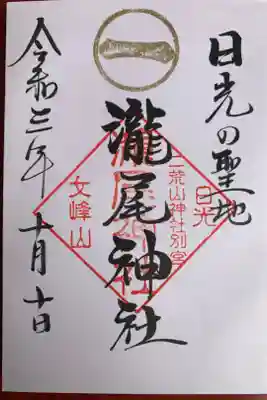 日光の聖地
一
瀧尾神社
日光
二荒山神社別宮
女峰山
令和三年十月十日